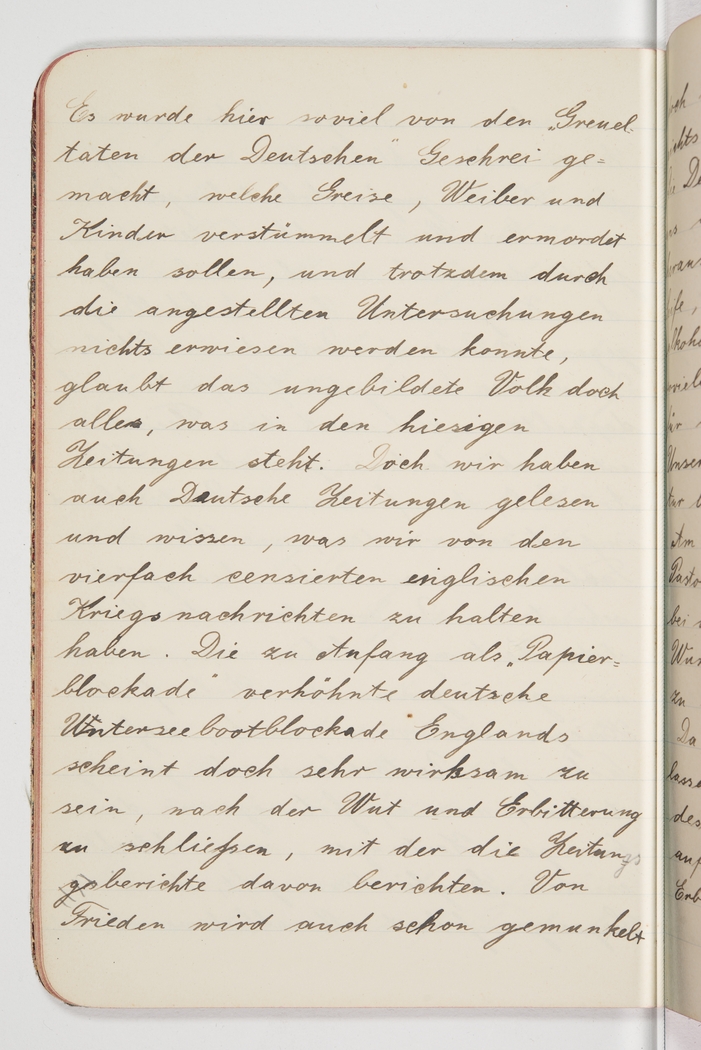 Es wurde hier soviel von den „Greuel-
taten der Deutschen" Geschrei ge=
macht, welche Greise, Weiber und
Kinder verstümmelt und ermordet
haben sollen, und trotzdem durch
die angestellten Untersuchungen
nichts erwiesen werden konnte,
glaubt das ungebildete Volk doch
alles, was in den hiesigen
Zeitungen steht. Doch wir haben
auch Deutsche Zeitungen gelesen
und wissen, was wir von den
vierfach censierten englischen
Kriegsnachrichten zu halten
haben. Die zu Anfang als „Papier=
blockade" verhöhnte deutsche
Unterseebootblockade Englands
scheint doch sehr wirksam zu
sein, nach der Wut und Erbitterung
zu schließen, mit der die Zeitungs
berichte davon berichten. Von
Frieden wird auch schon gemunkelt